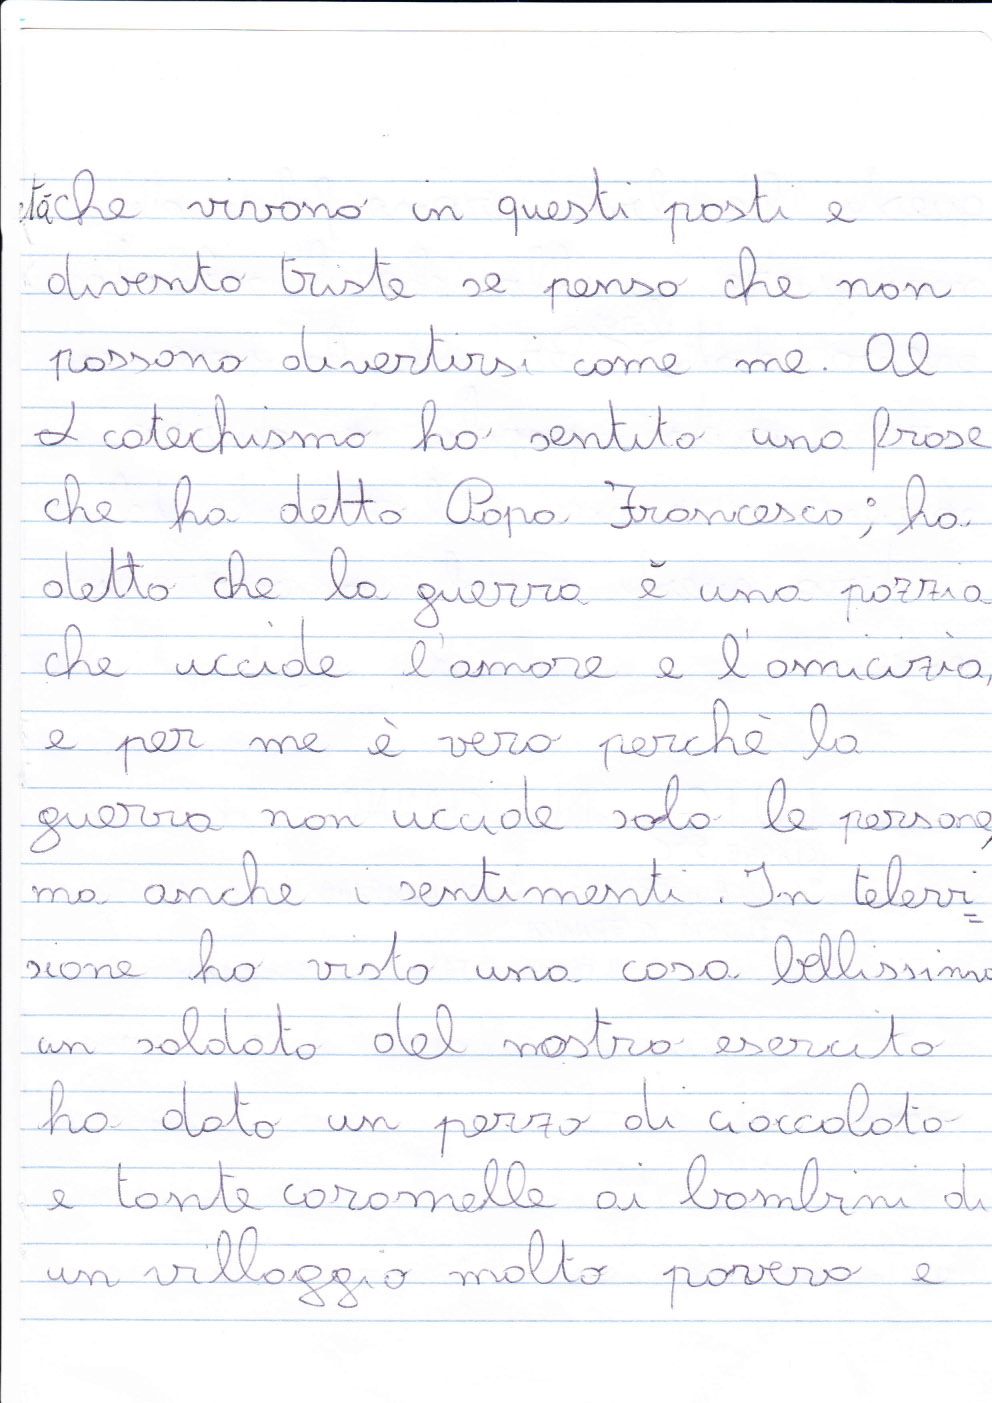 tà che vivono in questi posti e
divento triste se penso che non
possono divertirsi come me. Al
catechismo ho sentito una frase
che ha detto Papa Francesco; ha
detto che la guerra è una pazzia
che uccide l'amore e l'amicizia,
e per me è vero perchè la
guerra non uccide solo le persone,
ma anche i sentimenti. In televi=
sione ho visto una cosa bellissima
un soldato del nostro esercito
ha dato un pezzo di cioccolato
e tante caramelle ai bambini di
un villaggio molto povero e